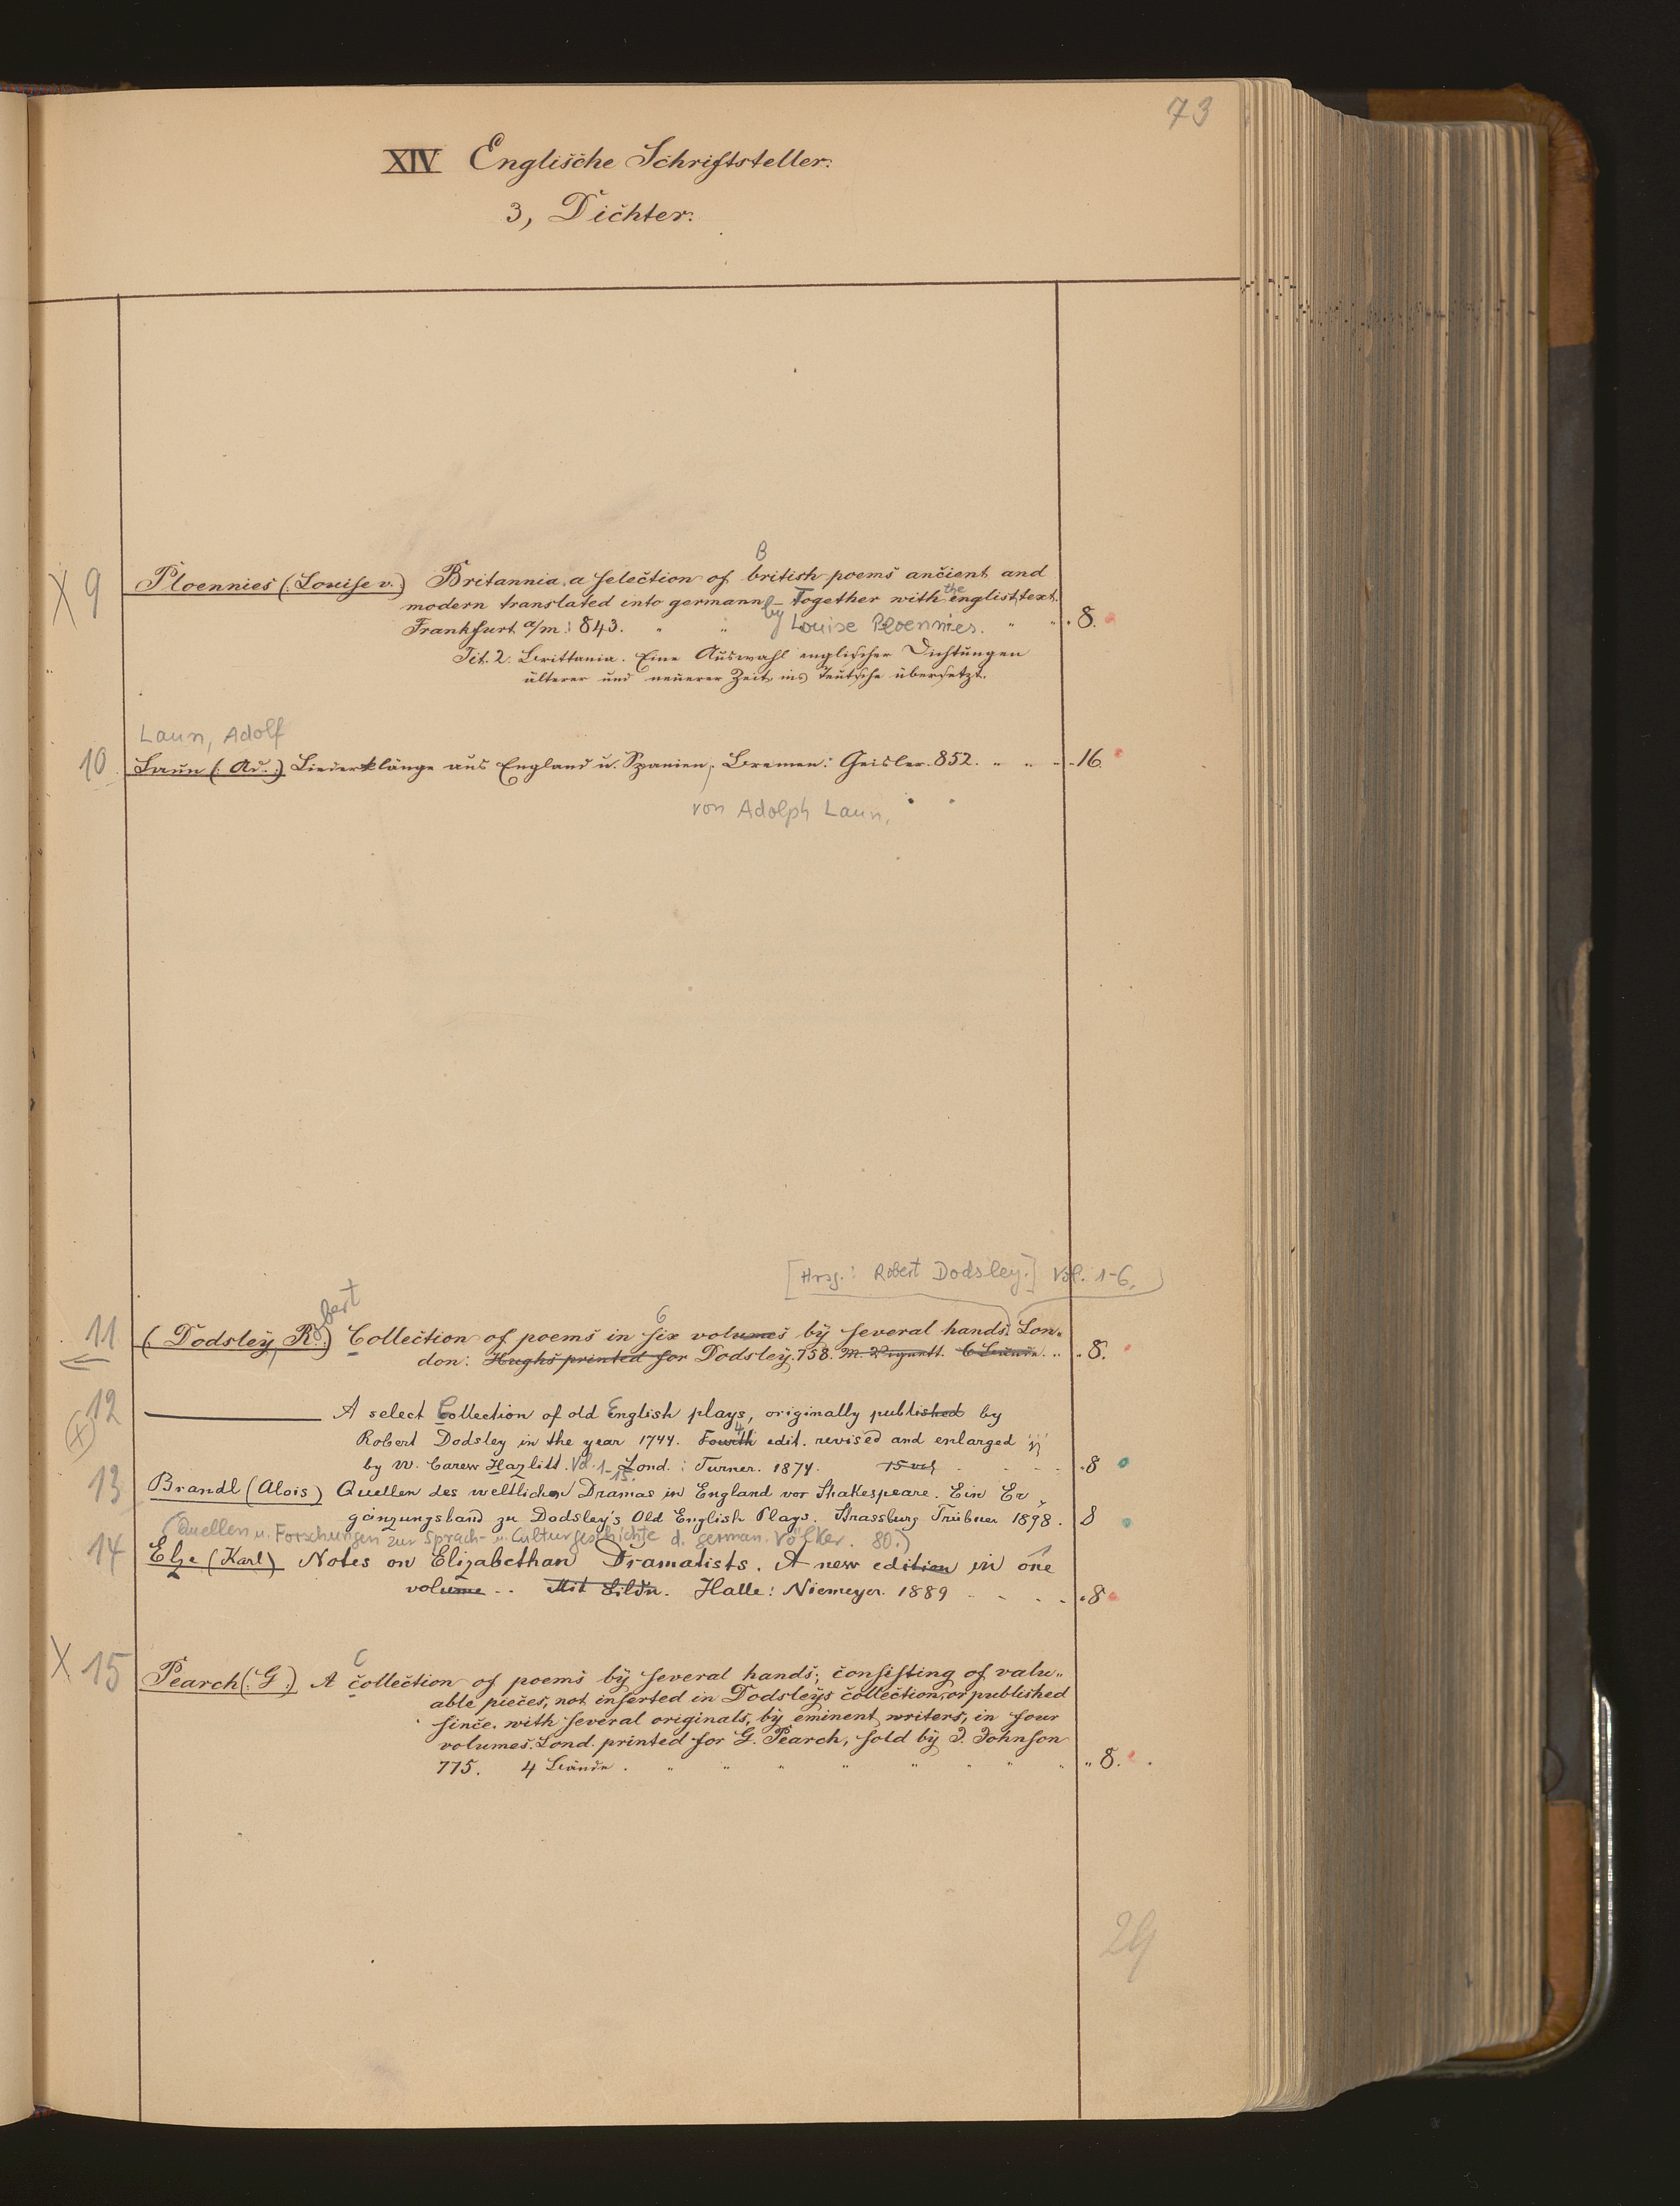 73
XIV Englische Schriftsteller.
3, Dichter.
B
X 9 Ploennies (: Louise v. :) Britannia, a selection of british poems ancient and
modern translated into germann by – Together with the englist, text.
Frankfurt a/m: 843. " " by Louise Ploennies. " " " 8.
Tit. 2. Brittania. Eine Auswahl englischer Dichtungen
älterer und neuerer Zeit, ins Teutsche übersetzt.
Laun, Adolf
10 Laun (: Ad. :) Liederklänge aus England u. Spanien, Bremen: Geisler. 852. " " " " 16.
von Adolph Laun.
[Hrsg.: Robert Dodsley.] Vol. 1-6.
obert
6
11 (Dodsley, R. :) Collection of poems in six volumes by several hands. Lon-
don: Hughs printed for Dodsley. 758. M. Vignett. 6 Bände. " " 8.
12 ——— A select Collection of old English plays, originally published by
(X) Robert Dodsley in the year 1744. Fourth 4 edit. revised and enlarged
by W. Carew Hazlitt. Vol. 1-15. Lond.: Turner. 1874. 15 vol. " 8
13 Brandl (Alois) Quellen des weltlichen Dramas in England vor Shakespeare. Ein Er-
gänzungsband zu Dodsley's Old English Plays. Strassburg Trübner 1898. 8
(Quellen u. Forschungen zur Sprach- u. Culturgeschichte d. german. Völker. 80.)
14 Elze (Karl) Notes on Elizabethan Dramatists. A new edition in one
1
volume . . Mit Bildn. Halle: Niemeyer. 1889 " 8
C
X 15 Pearch (: G :) A collection of poems by several hands, consisting of valu-
able pieces, not inserted in Dodsleys collection, or published
since. with several originals, by eminent writers, in four
volumes. Lond. printed for G. Pearch, sold by J. Johnson
775. 4 Bände. " " " " " " " " " 8.
29